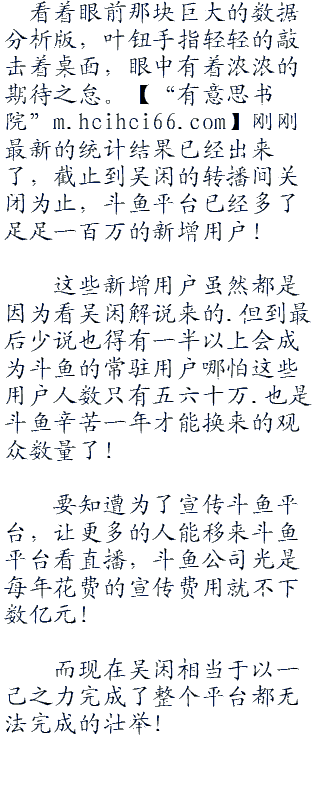 看着眼前那块巨大的数据
分析版，叶钮手指轻轻的敲
击着桌面，眼中有着浓浓的
期待之怠。【“有意思书
院”m.hcihci66.com】刚刚
最新的统计结果已经出来
了，截止到吴闲的转播间关
闭为止，斗鱼平台已经多了
足足一百万的新增用户！
这些新增用户虽然都是
因为看吴闲解说来的.但到最
后少说也得有一半以上会成
为斗鱼的常驻用户哪怕这些
用户人数只有五六十万.也是
斗鱼辛苦一年才能换来的观
众数量了！
要知遭为了宣传斗鱼平
台，让更多的人能移来斗鱼
平台看直播，斗鱼公司光是
每年花费的宣传费用就不下
数亿元！
而现在吴闲相当于以一
己之力完成了整个平台都无
法完成的壮举！